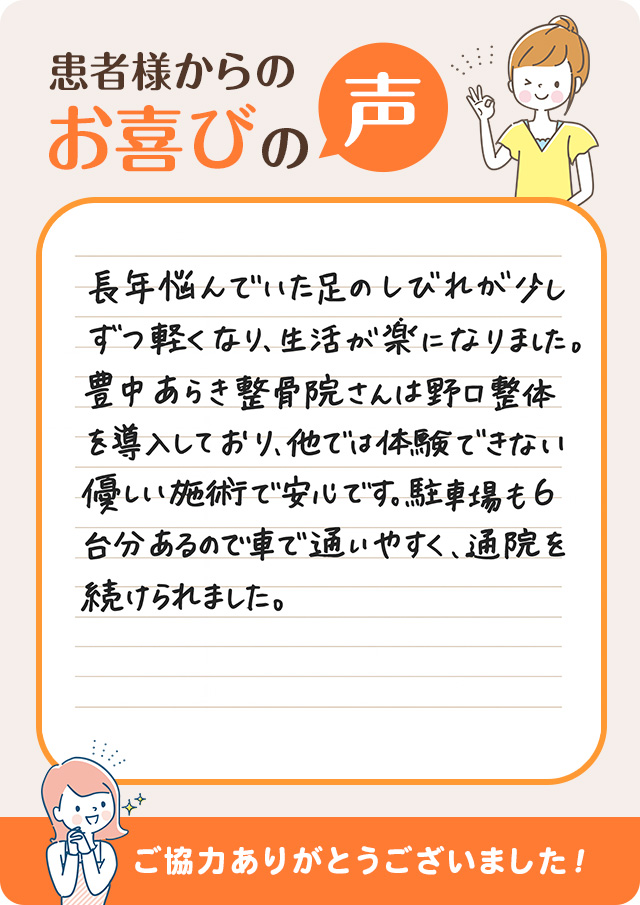 患者様からの
お喜びの声
長年悩んでいた足のしびれが少し
ずつ軽くなり、生活が楽になりました。
豊中あらき整骨院さんは野口整体
を導入しており、他では体験できない
優しい施術で安心です。駐車場も6
台分あるので車で通いやすく、通院を
続けられました。
ご協力ありがとうございました!